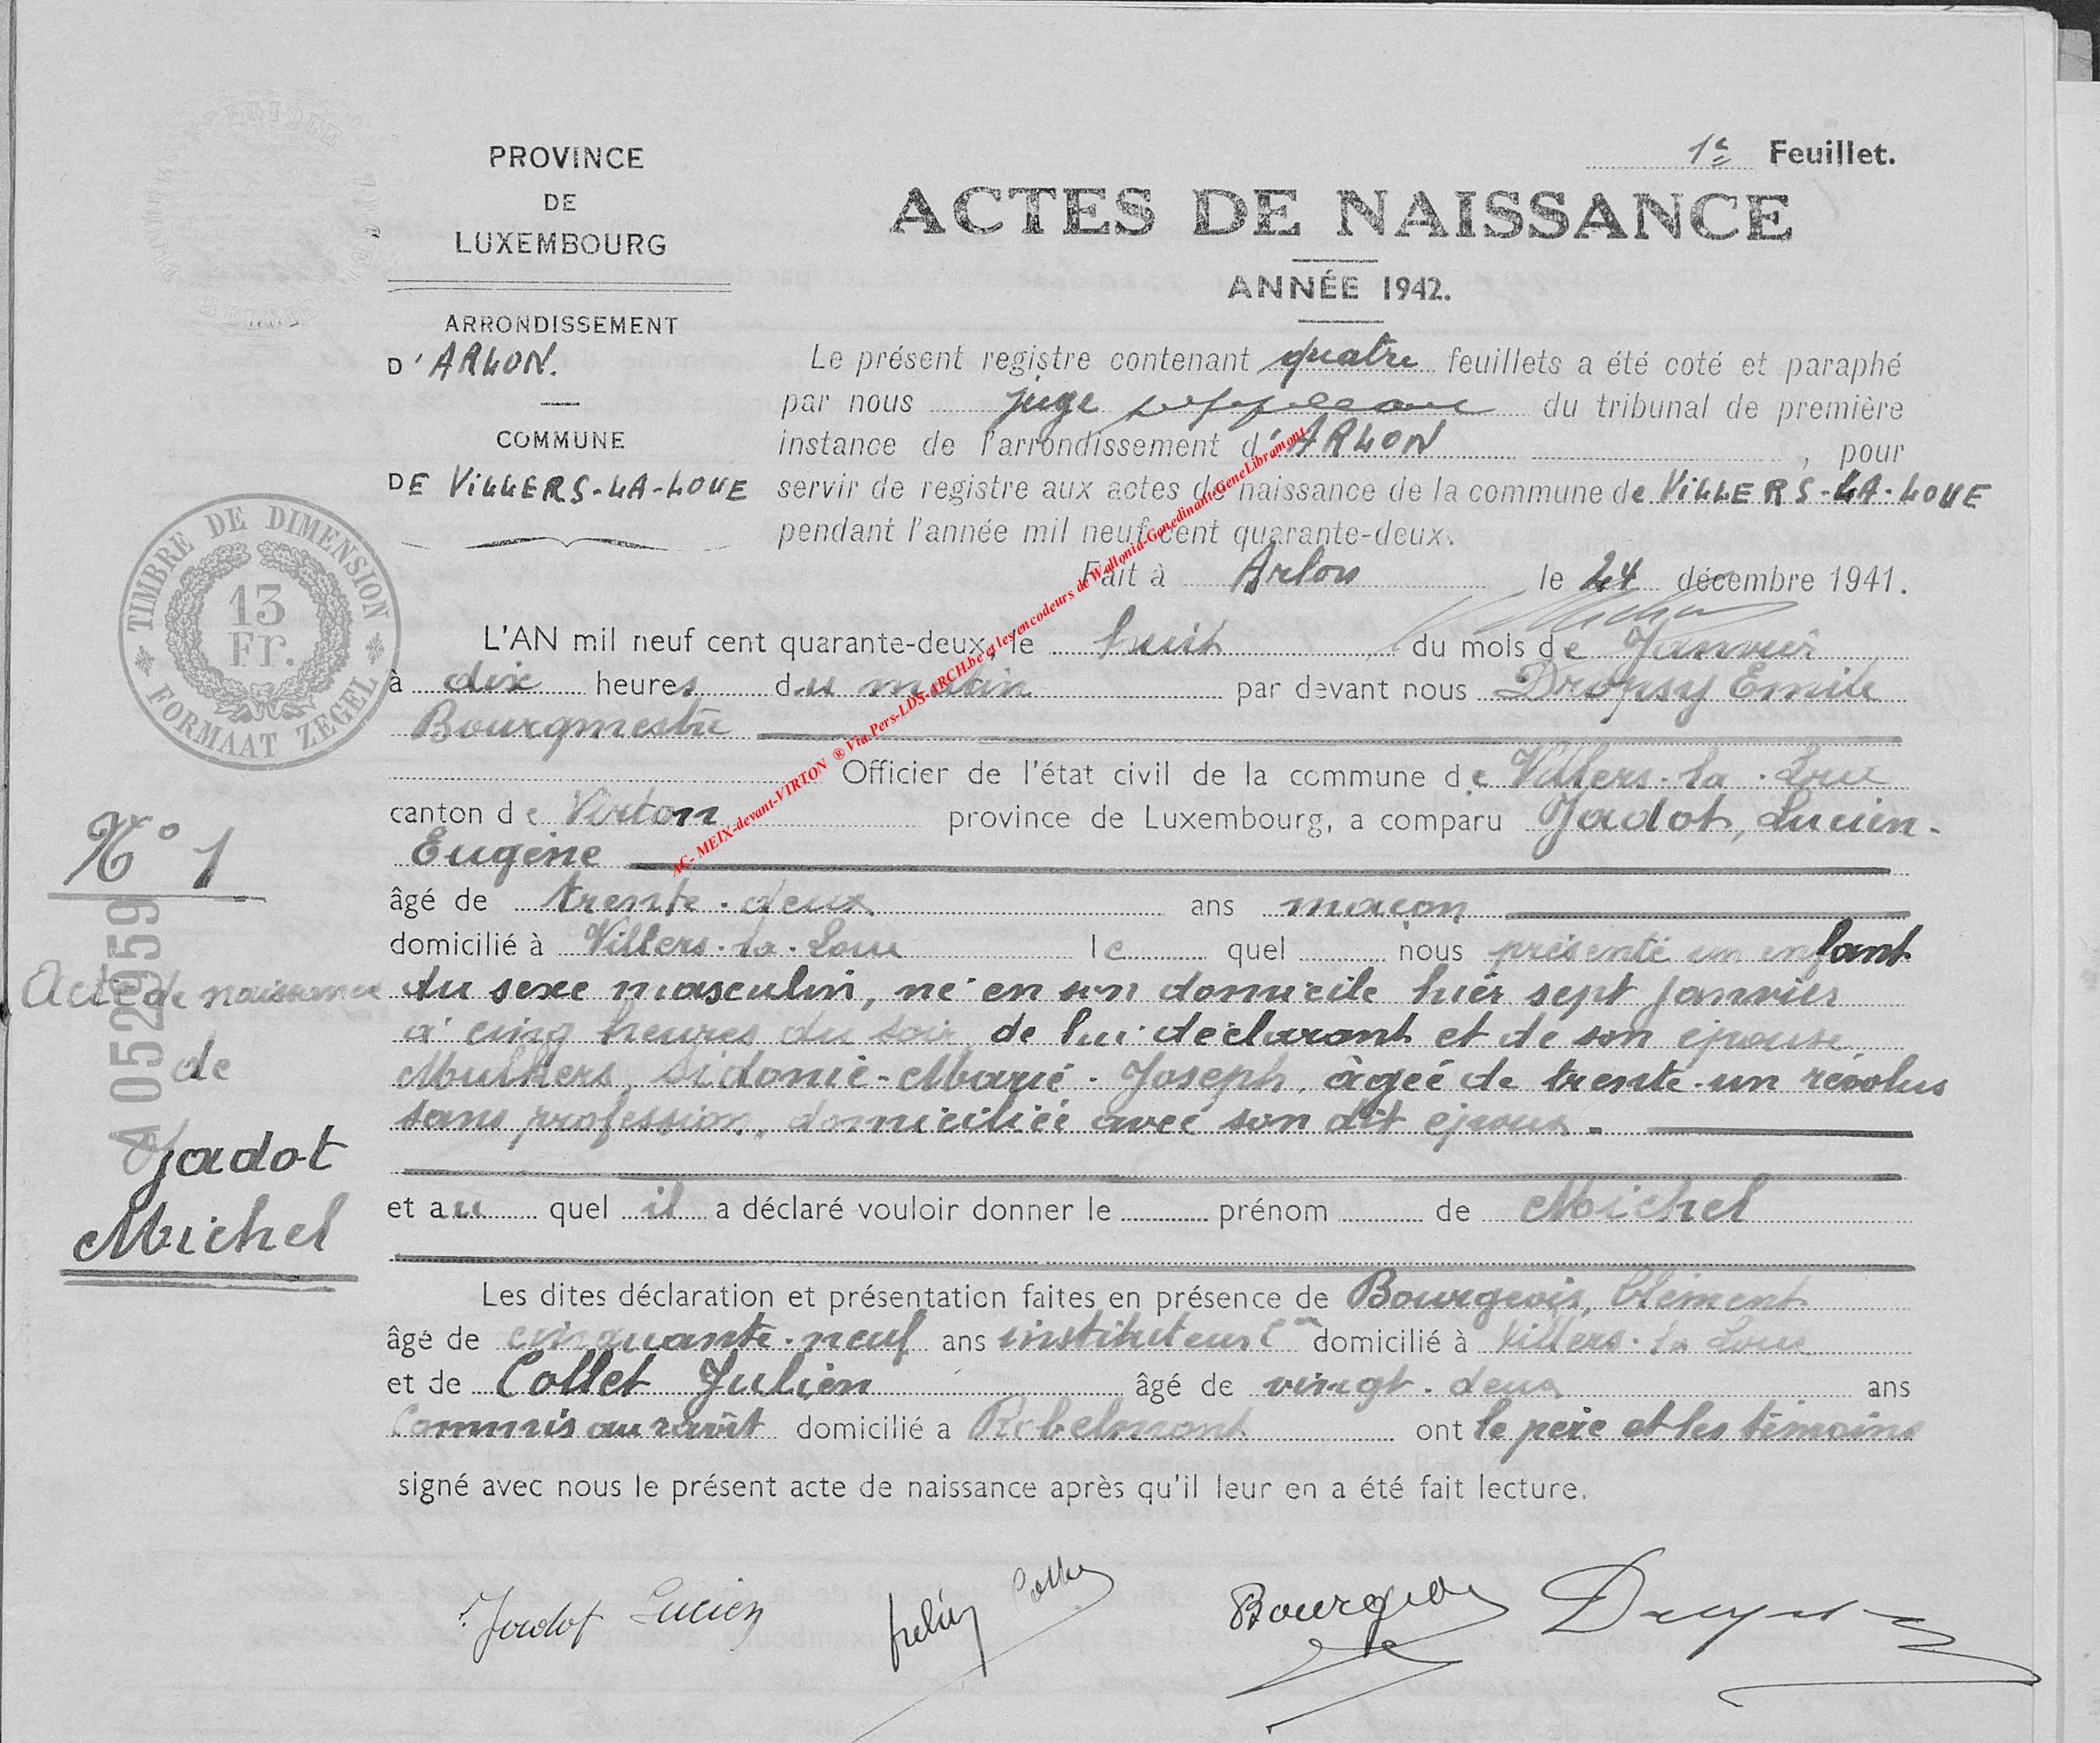 1e Feuillet.
PROVINCE
DE
LUXEMBOURG
ACTES DE NAISSANCE
ANNÉE 1942.
ARRONDISSEMENT
D'ARLON.
COMMUNE
DE VILLERS-LA-LOUE
Le présent registre contenant quatre feuillets a été coté et paraphé
par nous juge suppléant du tribunal de première
instance de l'arrondissement d'ARLON, pour
servir de registre aux actes de naissance de la commune de VILLERS-LA-LOUE
pendant l'année mil neuf cent quarante-deux.
Fait à Arlon le 24 décembre 1941.
TIMBRE DE DIMENSION
13
Fr.
FORMAAT ZEGEL
L'AN mil neuf cent quarante-deux, le huit du mois de Janvier
à dix heures du matin par devant nous Dropsy Emile
Bourgmestre
Officier de l'état civil de la commune de Villers-la-Loue
canton de Virton province de Luxembourg, a comparu Jadot, Lucien-
Eugène
âgé de trente-deux ans maçon
domicilié à Villers-la-Loue lequel nous présenté un enfant
du sexe masculin, né en son domicile hier sept Janvier
à cinq heures du soir, de lui déclarant et de son épouse
Mulkers, Sidonie-Marie-Joseph, âgée de trente-un révolus
sans profession, domiciliée avec son dit époux.
et au quel il a déclaré vouloir donner le prénom de Michel
Les dites déclaration et présentation faites en présence de Bourgeois, Clément
âgé de cinquante-neuf ans instituteur Cal domicilié à Villers-la-Loue
et de Collet Julien âgé de vingt-deux ans
Commis au ravit domicilié a Robelmont ont le père et les témoins
signé avec nous le présent acte de naissance après qu'il leur en a été fait lecture.
N° 1
A 052959
Acte de naissance
de
Jadot
Michel
Jadot Lucien
Julien Collet
Bourgeois
Dropsy
AC- MEIX-devant-VIRTON ® Via Pers-LDS-ARCH.be et les encodeurs de Wallonia-Genedinant-GeneLibramont